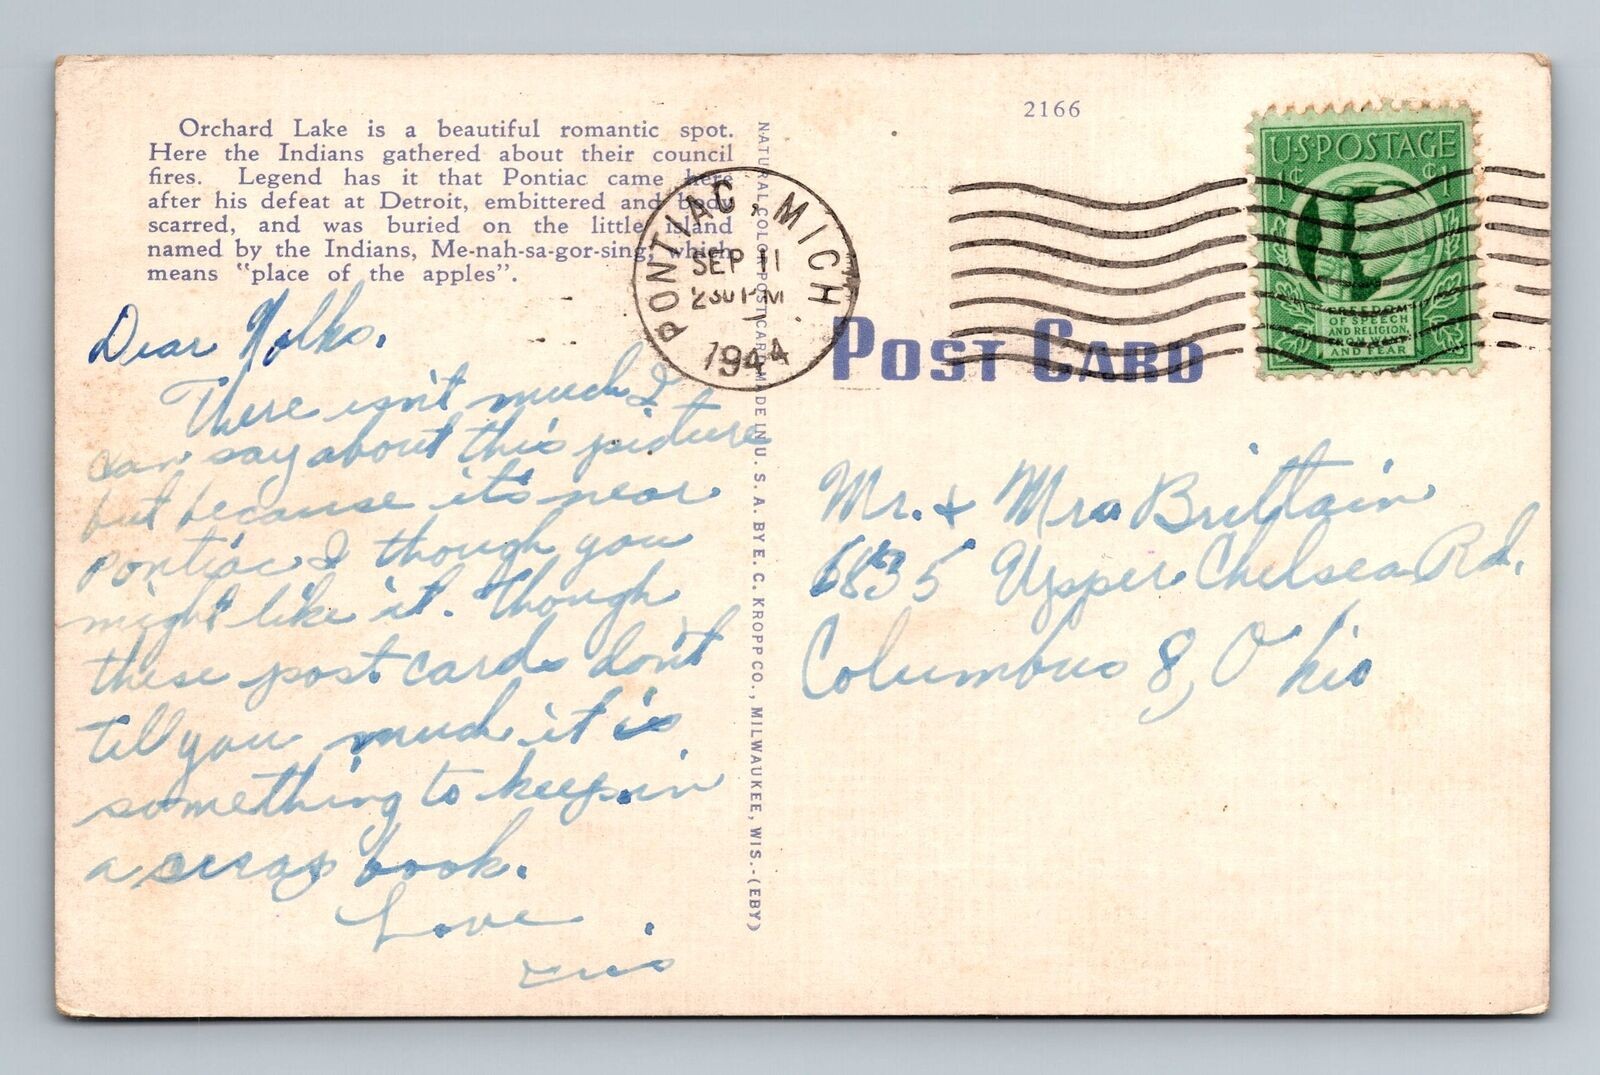 Orchard Lake is a beautiful romantic spot.
Here the Indians gathered about their council
fires. Legend has it that Pontiac came here
after his defeat at Detroit, embittered and body
scarred, and was buried on the little island
named by the Indians, Me-nah-sa-gor-sing, which
means "place of the apples".
Dear Folks.
There isn't much I
can say about this picture
but because it's near
pontiac I though you
might like it. Though
these post cards don't
tell you much it is
something to keep in
a scrap book.
Love
NATURAL COLOR POST CARD MADE IN U. S. A. BY E. C. KROPP CO., MILWAUKEE, WIS.-(EBY)
PONTIAC, MICH
SEP 11
230 PM
1944
2166
U·S·POSTAGE
1¢ ¢1
FREEDOM
OF SPEECH
AND RELIGION,
FROM WANT
AND FEAR
POST CARD
Mr. & Mrs Brittain
6835 Upper Chelsea Rd.
Columbus 8, Ohio